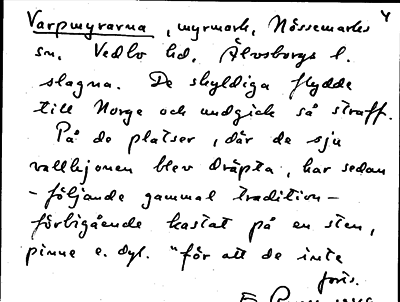 4
Varpmyrarna, myrmark, Nössemarks
sn. Vedbo hd, Älvsborgs l.
slagna. De skyldiga flydde
till Norge och undgick så straff.
På de platser, där de sju
vallhjonen blev dräpta, har sedan
- följande gammal tradition -
förbigående kastat på en sten,
pinne e. dyl. "för att de inte